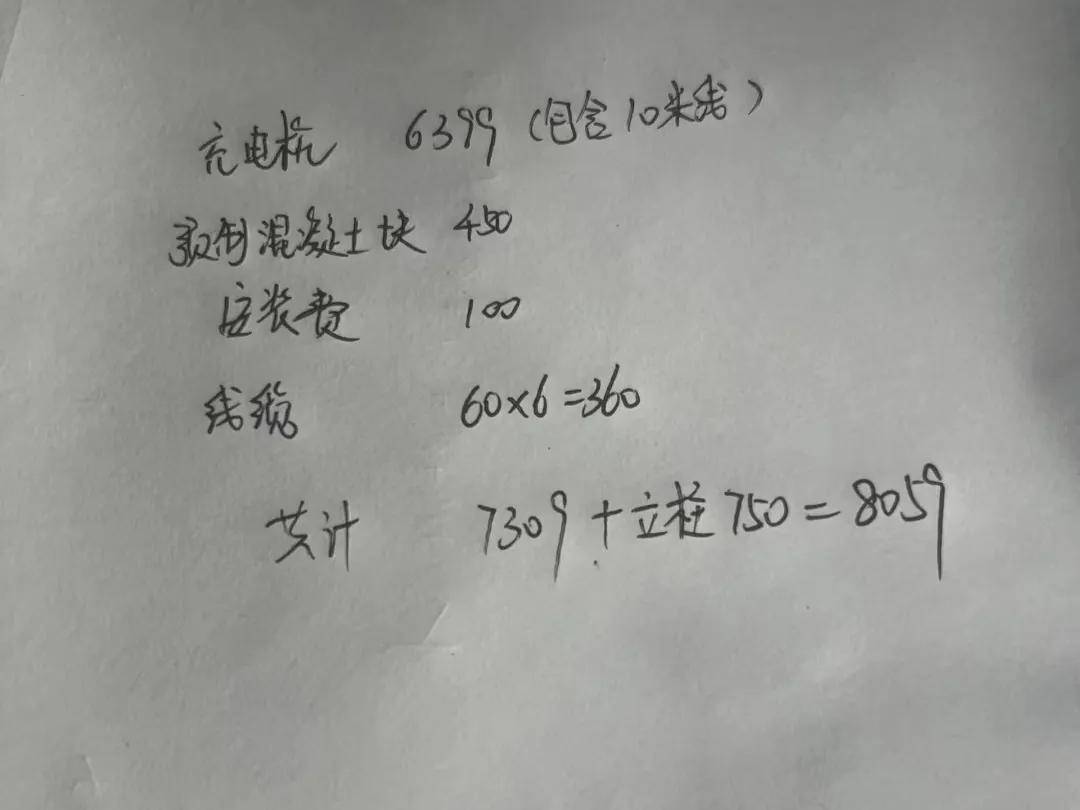 充电桩 6399（包含10米线）
预制混凝土块 450
安装费 100
线缆 60×6=360
共计 7309+立柱750=8059